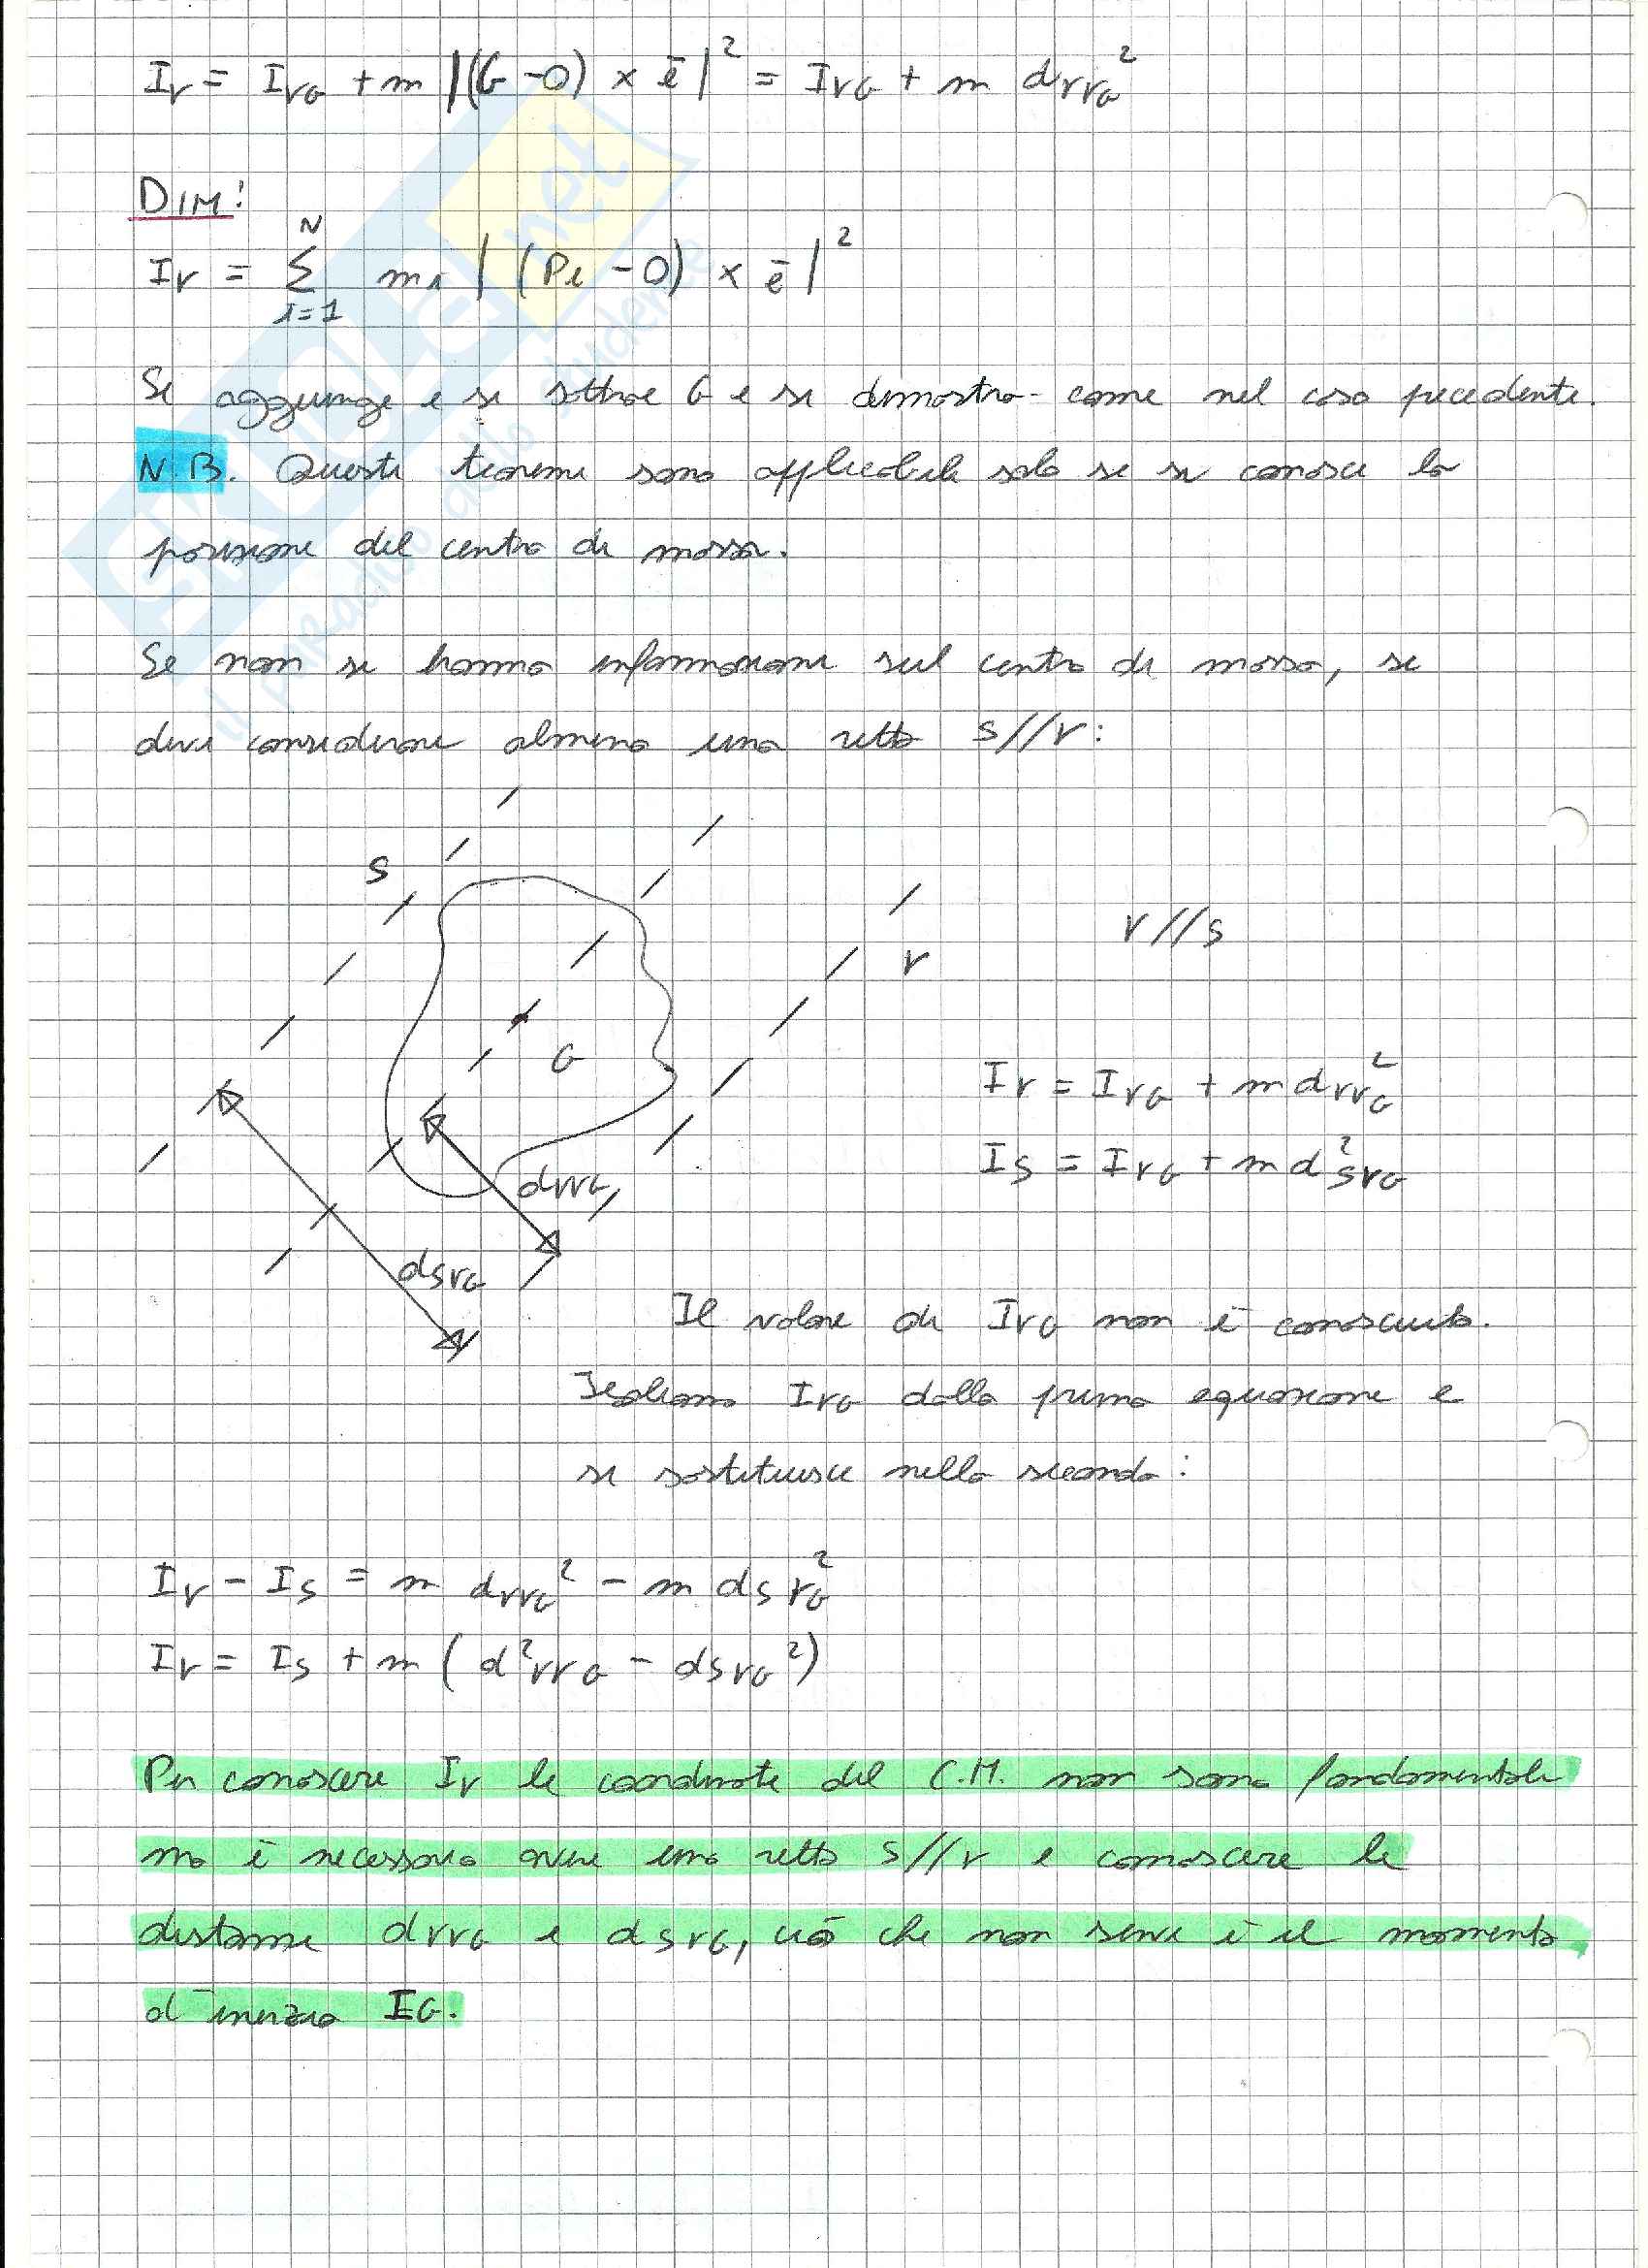 Ir = IrG + m |(G-O) × ē|² = IrG + m drrG²
DIM:
Ir = Σ i=1 N mi |(Pi - O) × ē|²
Si aggiunge e si sottrae G e si dimostra come nel caso precedente.
N.B. Questi teoremi sono applicabili solo se si conosce la
posizione del centro di massa.
Se non si hanno informazioni sul centro di massa, si
deve considerare almeno una retta s//r:
s
r
r//s
G
Ir = IrG + m drrG²
Is = IrG + m d²srG
drrG
dsrG
Il valore di IrG non è conosciuto.
Isoliamo IrG dalla prima equazione e
si sostituisce nella seconda:
Ir - Is = m drrG² - m dsrG²
Ir = Is + m (d²rrG - dsrG²)
Per conoscere Ir le coordinate del C.M. non sono fondamentali
ma è necessario avere una retta s//r e conoscere le
distanze drrG e dsrG, ciò che non serve è il momento
d'inerzia IG.
SKUOLA.net
il paradiso dello studente